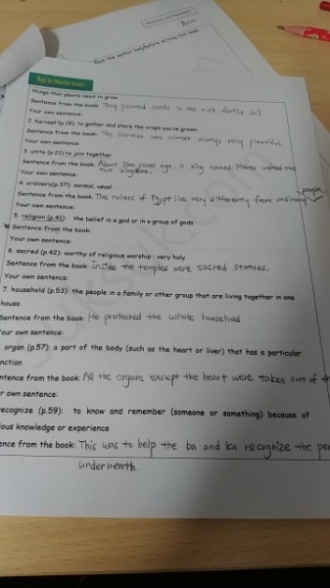 Ann
things that plants need to grow
Sentence from the book: They planted seeds in the rich, fertile soil
Your own sentence:
2. harvest (p.19): to gather and store the crops you've grown
Sentence from the book: The harvest was always plentiful
Your own sentence:
3. unite (p.21) to join together
Sentence from the book: About years ago, a king named Menes united the two kingdoms.
Your own sentence:
4. ordinary (p.37): normal, usual
people
Sentence from the book: The rulers of Egypt live very differently from ordinary
Your own sentence:
5. religion (p.41): the belief in a god or in a group of gods
Sentence from the book:
Your own sentence:
6. sacred (p.42): worthy of religious worship : very holy
Sentence from the book: Inside the temples were sacred statues.
Your own sentence:
7. household (p.53): the people in a family or other group that are living together in one
house
Sentence from the book: He protected the whole household.
Your own sentence:
organ (p.57): a part of the body (such as the heart or liver) that has a particular
nction.
ntence from the book: All the organs except the heart were taken out of th
r own sentence:
recognize (p.59): to know and remember (someone or something) because of
ious knowledge or experience
ence from the book: This was to help the ba and ka recognize the per
underneath.